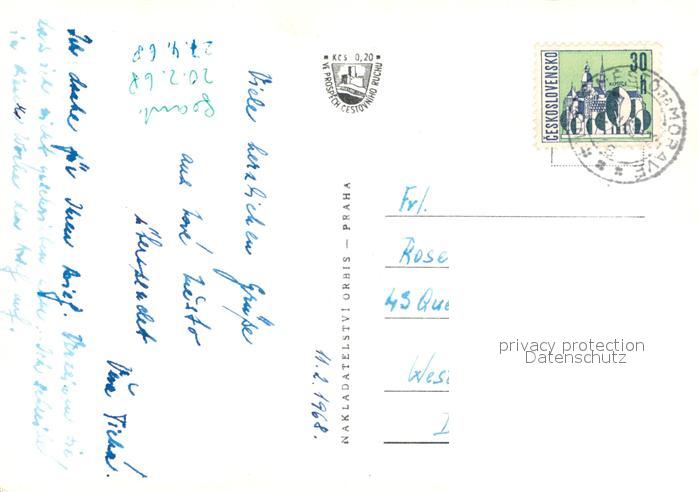 Viele herzlichen Grüße
aus Nové Město
übersendet
Věra Tichá.
Ich danke für Ihren Brief. Verzeihen Sie,
11.2.1968.
20.2.68
27.4.68
Kčs 0,20
VE PROSPĚCH CESTOVNÍHO RUCHU
NAKLADATELSTVÍ ORBIS — PRAHA
ČESKOSLOVENSKO
30
h
MORAVĚ
Frl.
Rose
43 Que
West
D
privacy protection
Datenschutz